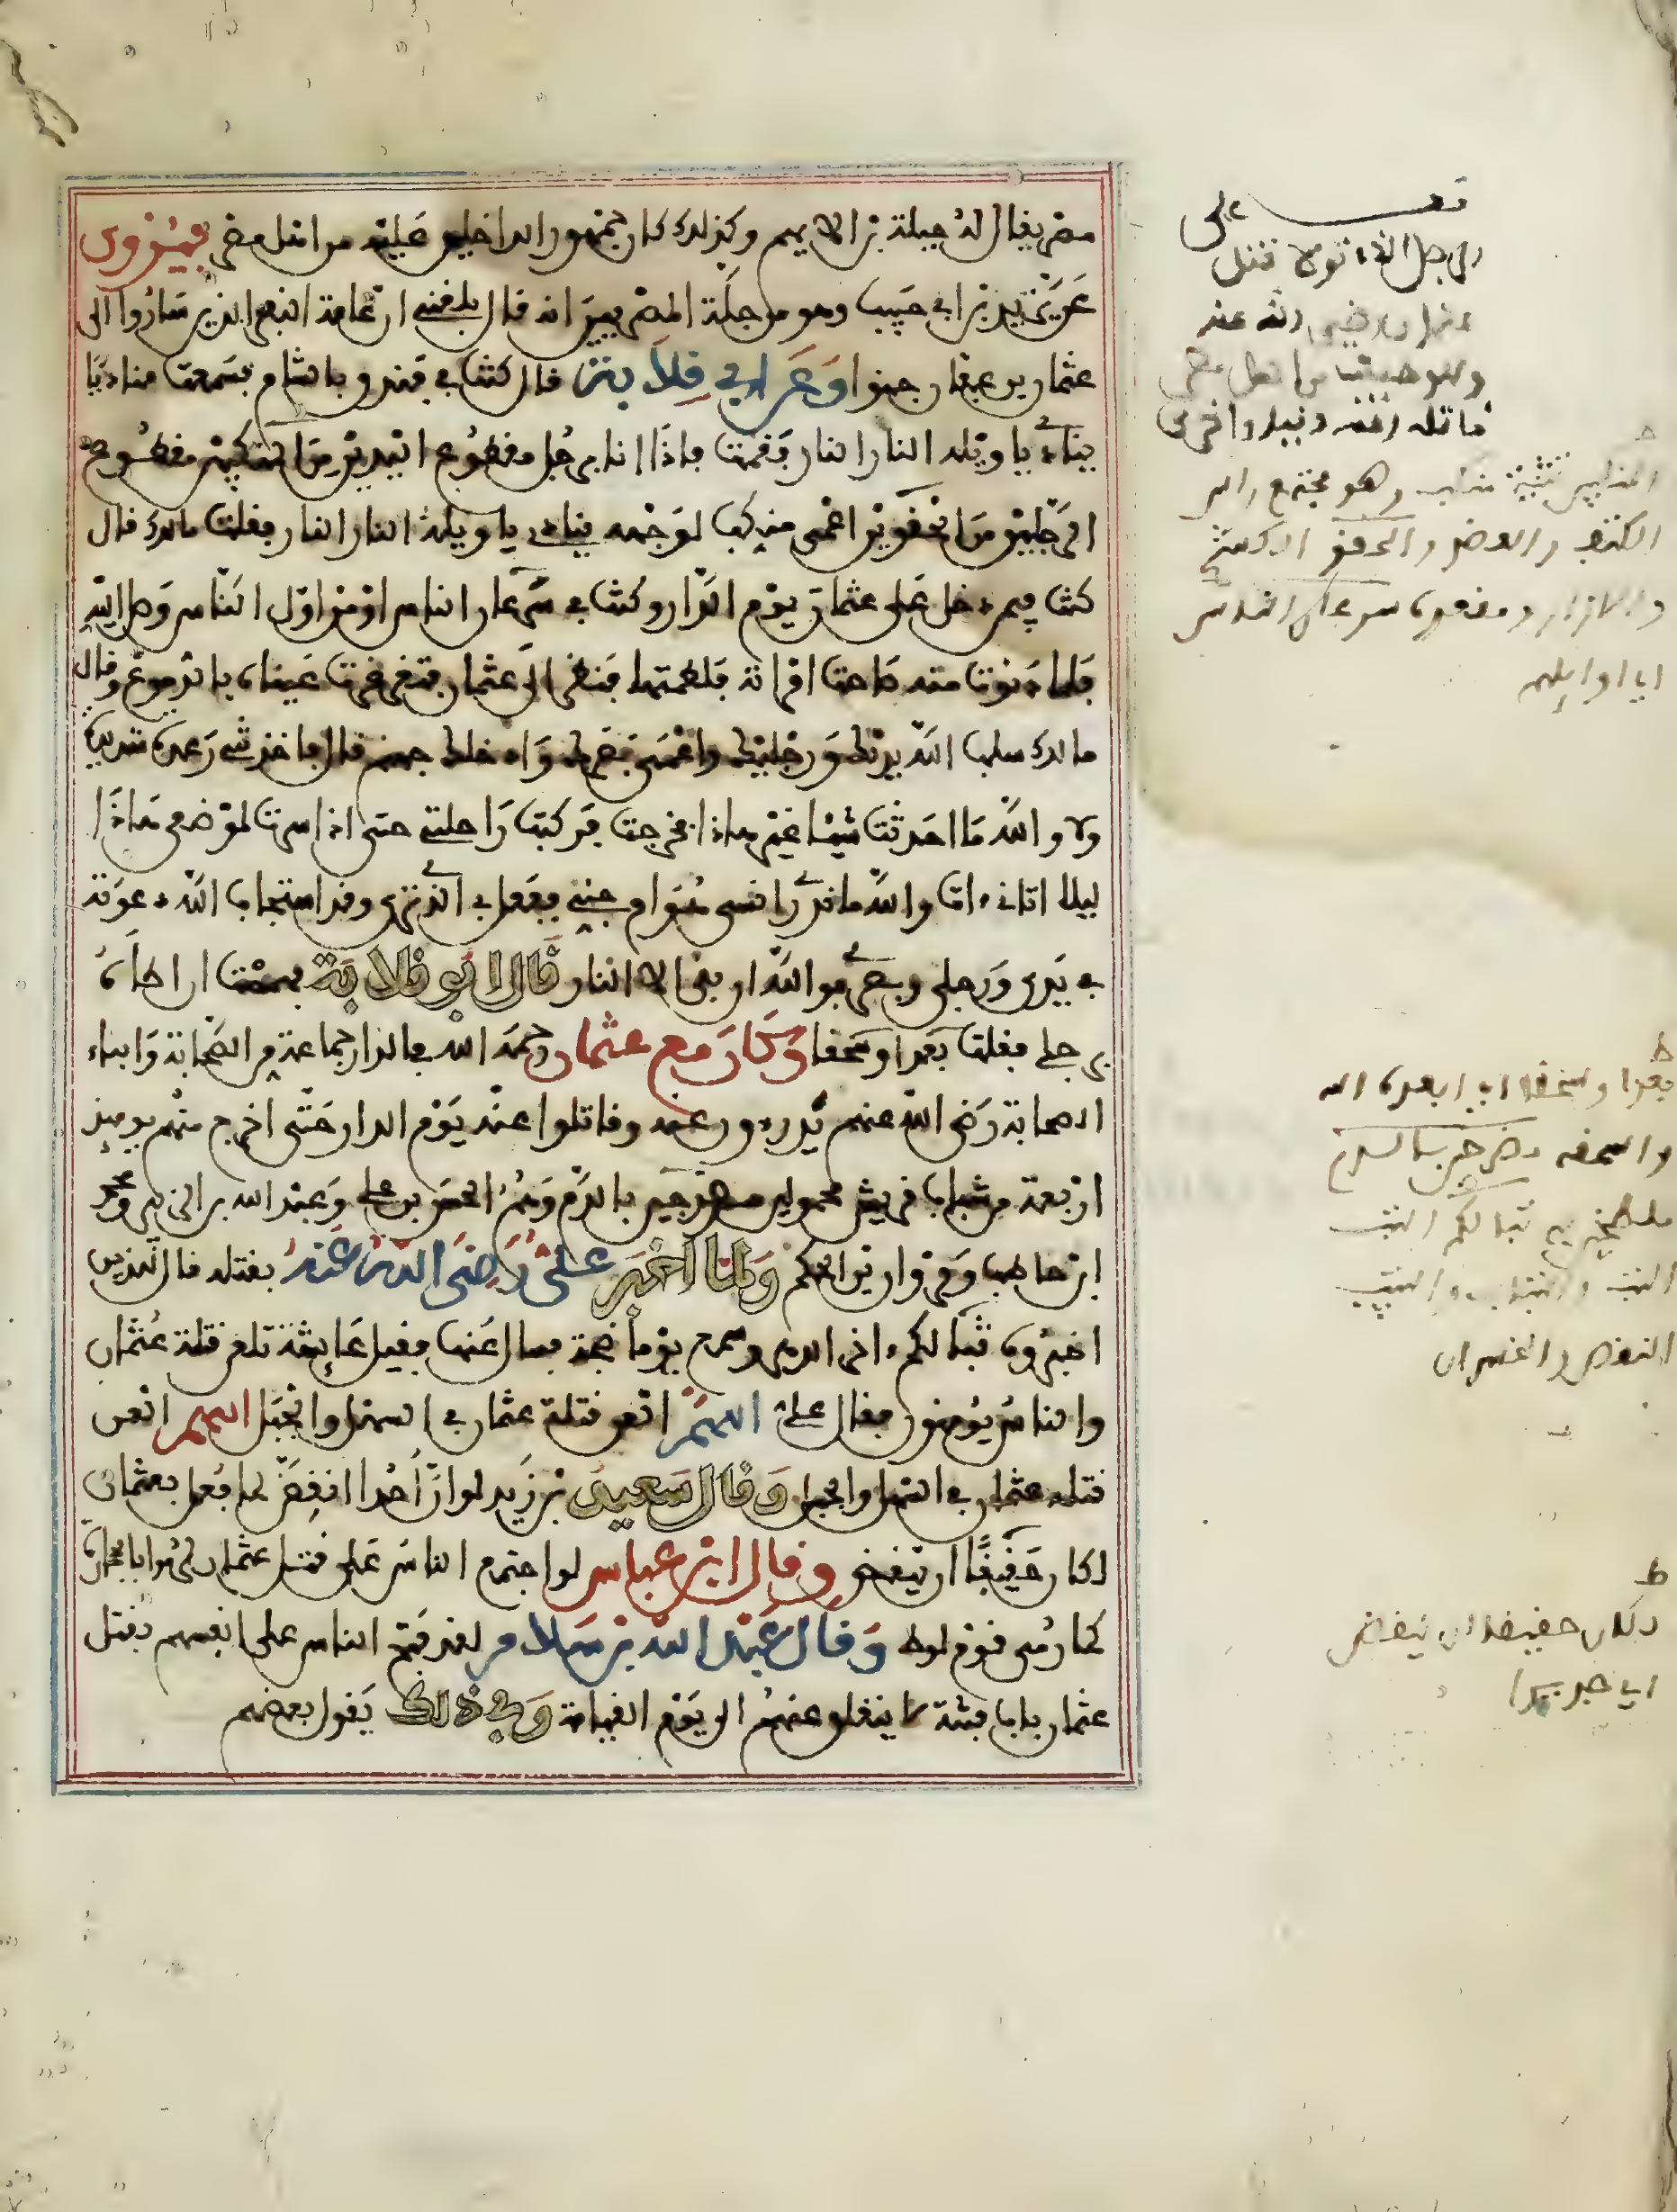 مصر يقال له جبلة بن الايهم وكذلك كان جمهور الداخلين عليه من اهل مصر فيروى
عن يزيد بن ابي حبيب وهو من جلة المصريين انه قال بلغني ان عامة النفر الذين ساروا الى
عثمان بن عفان جنوا وعن ابي قلابة قال كنت في فندق بالشام فسمعت مناديا
ينادي يا ويله النار النار فقمت فاذا انا برجل مقطوع اليدين من المنكبين مقطوع
الرجلين من الحقوين اعمى منكب لوجهه ينادي يا ويله النار النار فقلت مالك قال
كنت فيمن دخل على عثمان يوم الدار وكنت في سرعان الناس او من اول الناس وصل اليه
فلما دنوت منه صاحت امراته فلطمتها فنظر الي عثمان فتغرغرت عيناه بالدموع وقال
مالك سلب الله يديك ورجليك واعمى بصرك وادخلك جهنم قال فاخذتني رعدة شديدة
ولا والله ما احدثت شيئا غير هاذا فخرجت فركبت راحلتي حتى اذا سرت لموضعي هاذا
ليلا اتاني ات والله ما ادري انسي هو ام جني ففعل بي الذي ترى وقد استجاب الله دعوته
في يدي ورجلي وبصري فوالله ان بقي الا النار قال ابو قلابة فهممت ان اطأه
برجلي فقلت بعدا وسحقا وكان مع عثمان رحمه الله في الدار جماعة من الصحابة وابناء
الصحابة رضي الله عنهم يدرءون عنه وقاتلوا عنه يوم الدار حتى اخرج منهم يومئذ
اربعة من شباب قريش محمولين مضرجين بالدم وهم الحسن بن علي وعبد الله بن الزبير ومحمد
ابن حاطب ومروان بن الحكم ولما اخبر علي رضي الله عنه بقتله قال للذين
اخبروه تبا لكم ءاخر الدهر وسمع يوما ضجة فسال عنها فقيل عايشة تلعن قتلة عثمان
والناس يؤمنون فقال علي اللهم العن قتلة عثمان في السهل والجبل اللهم العن
قتلة عثمان في السهل والجبل وقال سعيد بن زيد لو ان احدا انقض لما فعل بعثمان
لكان حقيقا ان ينقض وقال ابن عباس لو اجتمع الناس على قتل عثمان لرموا بالحجارة
كما رمي قوم لوط وقال عبد الله بن سلام لقد فتح الناس على انفسهم بقتل
عثمان باب فتنة لا ينغلق عنهم الى يوم القيامة وفي ذلك يقول بعضهم
على
الرجل الذي تولى قتل
عثمان رضي الله عنه
وهو جبلة من اهل مصر
قاتله الله
المنكبين تثنية منكب وهو مجتمع راس
الكتف والعضد والحقو الكشح
والازار ومعقده سرعان الناس
اي اوايلهم
ط
بعدا وسحقا اي ابعده الله
واسحقه مضرجين بالدم
ملطخين به تبا لكم التب
التب والتباب والتتبيب
النقص والخسران
ط
لكان حقيقا ان ينقض
اي جديرا